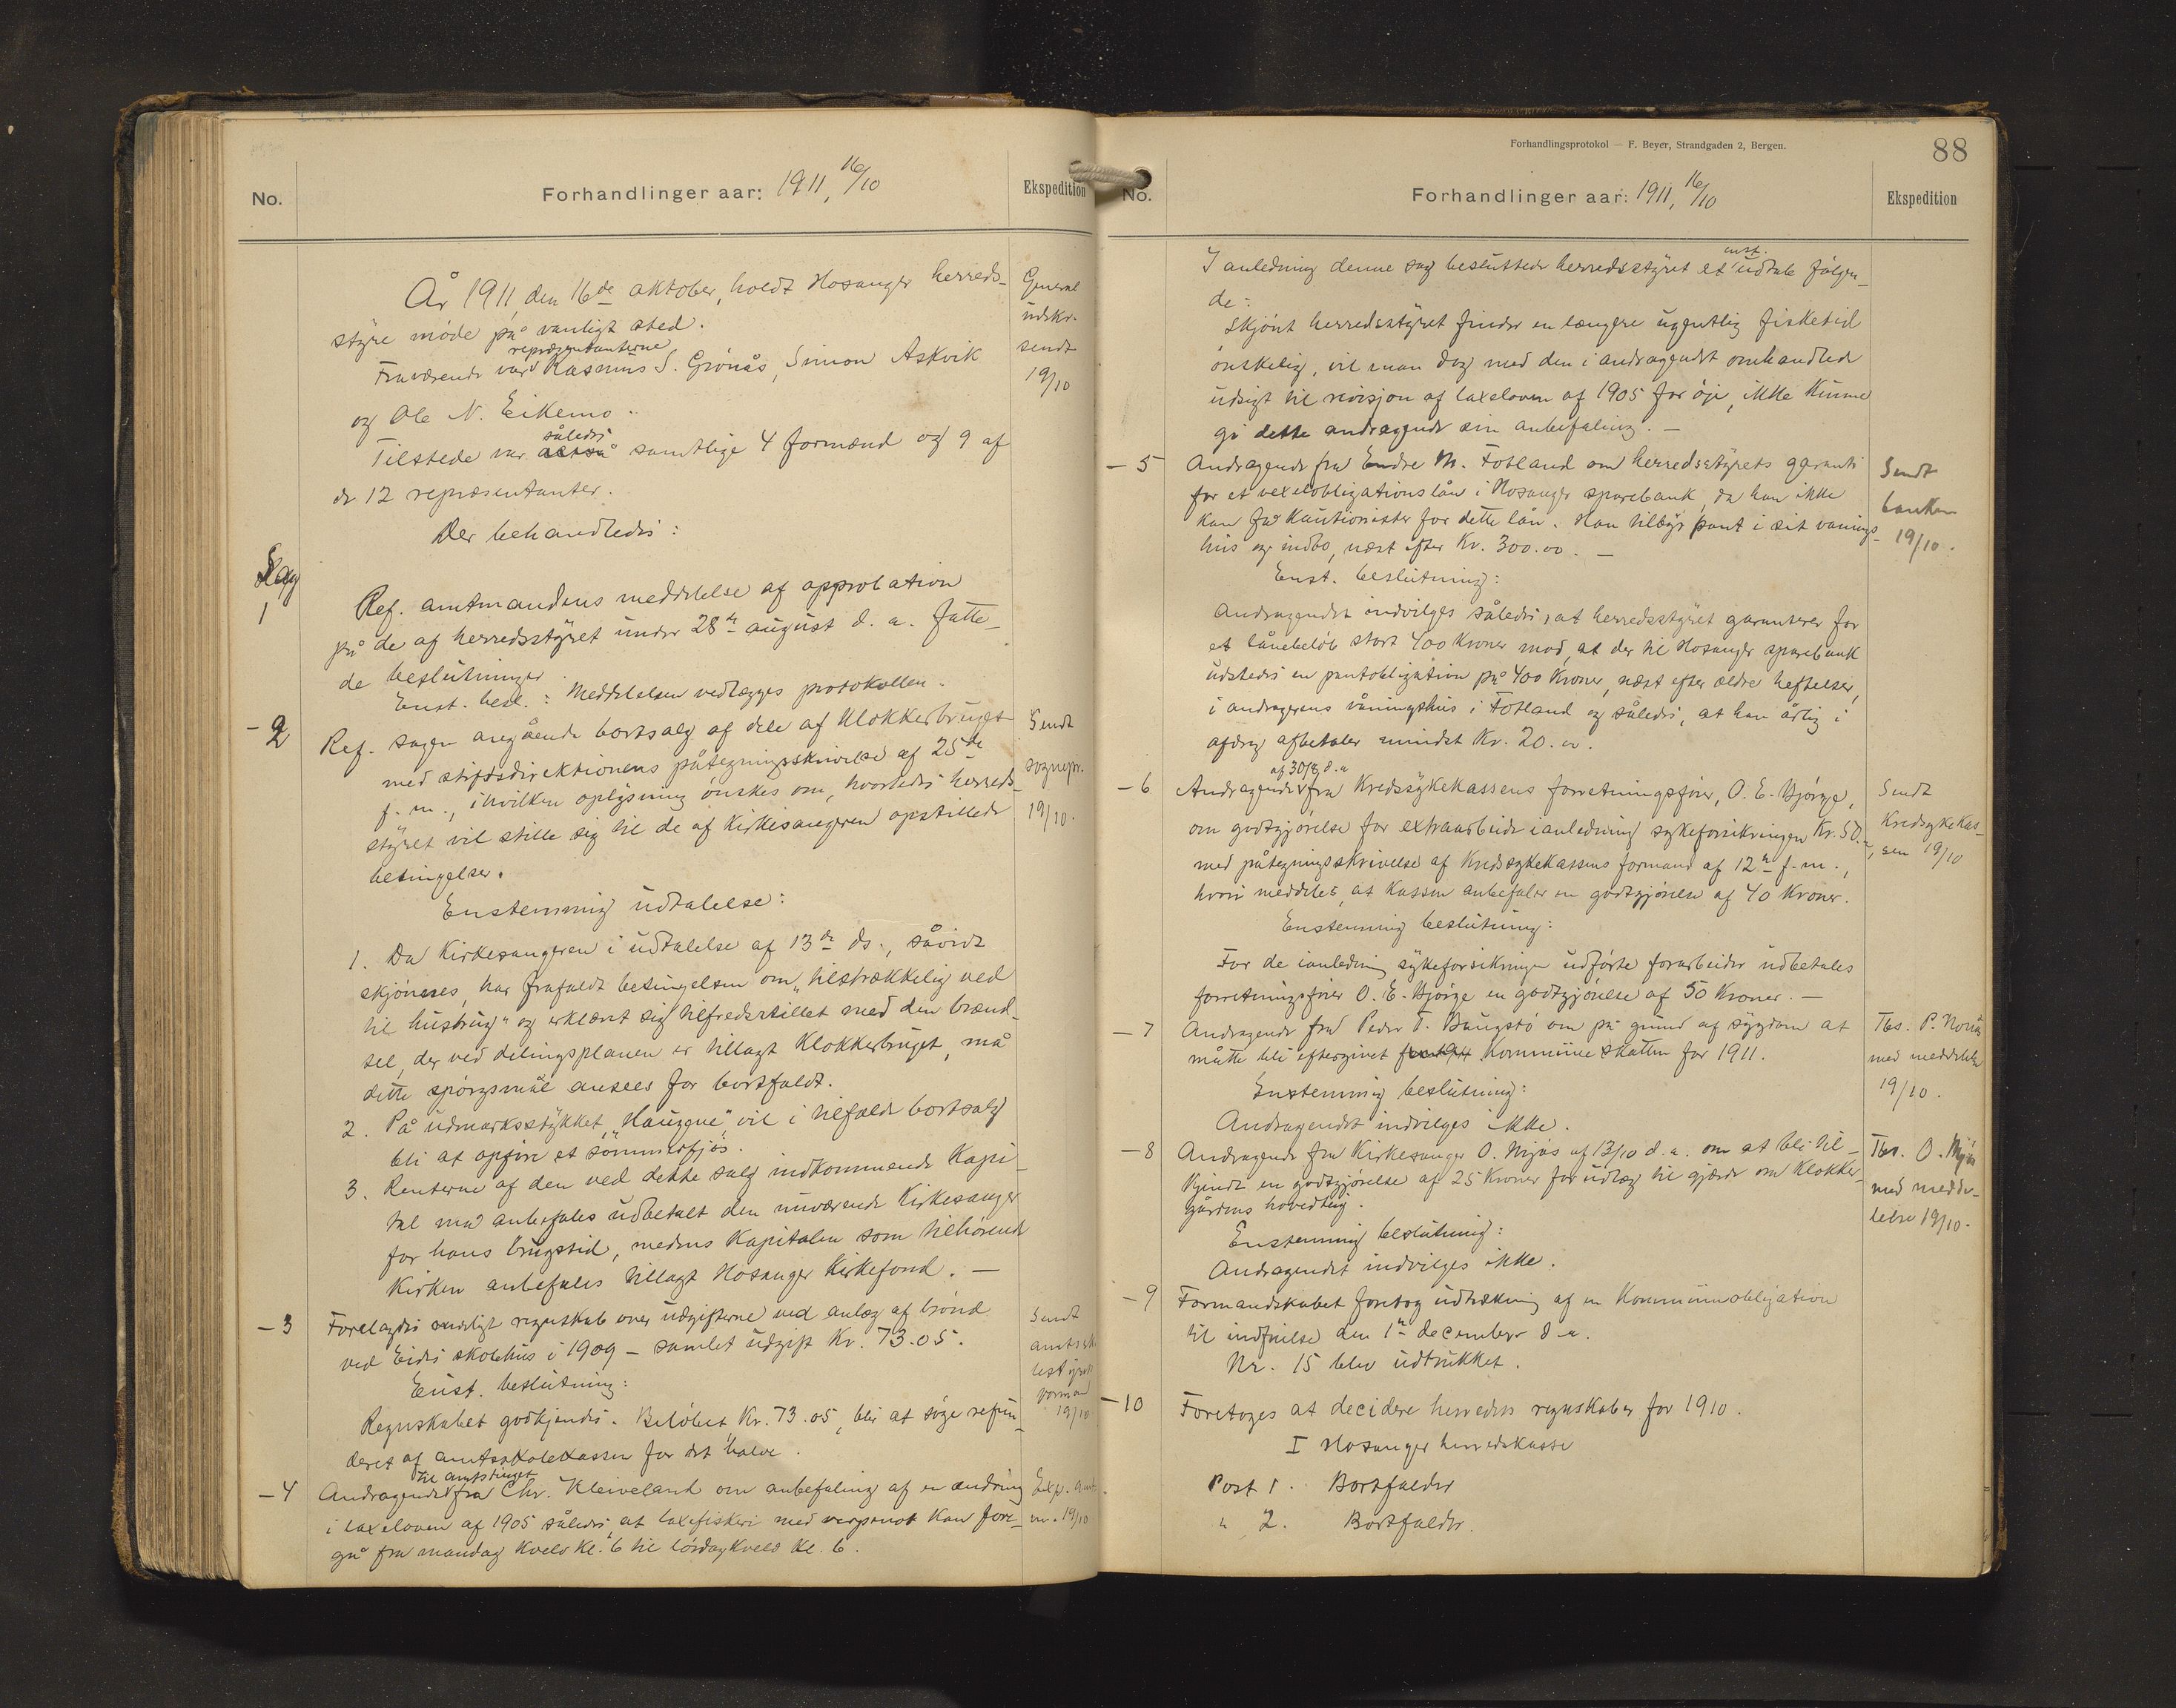 No.
Forhandlinger aar: 1911, 16/10
Ekspedition
År 1911, den 16de oktober, holdt Hosanger herreds-
styre möde på vanligt sted.
Fraværende var repræsentanterne Rasmus S. Grönås, Simon Askvik
og Ole N. Eikemo.
Tilstede var således samtlige 4 formænd og 9 af
de 12 repræsentanter.
Der behandledes:
General
udskr.
sendt
19/10
Sag
1
Ref. amtmandens meddelelse af approbation
på de af herredsstyret under 28de august d. a. fatte-
de beslutninger.
Enst. besl.: Meddelelsen vedlægges protokollen.
- 2
Ref. sagen angående bortsalg af dele af Klokkerbruget
med stiftsdirektionens påtegningsskrivelse af 25de
f. m., i hvilken oplysning önskes om, hvorledes herreds-
styret vil stille sig til de af Kirkesangeren opstillede
betingelser.
Sendt
sognepr.
19/10.
Enstemmig udtalelse:
1. Da Kirkesangeren i udtalelse af 13de ds., såvidt
skjönnes, har frafaldt betingelsen om „tilstrækkelig ved
til husbrug" og erklært sig tilfredsstillet med den brænd-
sel, der ved delingsplanen er tillagt Klokkerbruget, må
dette spörgsmål ansees for bortfaldt.
2. På udmarksstykket „Haugane" vil i tilfælde bortsalg
bli at opföre et sommerfjös.
3. Renterne af den ved dette salg indkommende Kapi-
tal må anbefales udbetalt den nuværende Kirkesanger
for hans brugstid, medens Kapitalen som tilhörende
Kirken anbefales tillagt Hosanger Kirkefond. —
- 3
Forelagdes endeligt regnskab over udgifterne ved anlæg af brönd
ved Eides skolehus i 1909 - samlet udgift Kr. 73.05.
Enst. beslutning:
Regnskabet godkjendes. Belöbet Kr. 73.05, blir at söge refun-
deret af amtsskolekassen for det halve.
Sendt
19/10
- 4
Andragende til amtstinget fra Chr. Kleiveland om anbefaling af en ændring
i laxeloven af 1905 således, at laxefiskeri med verpenot kan fore-
gå fra mandag kveld Kl. 6 til lördag kveld Kl. 6.
Exp. amt-
m. 19/10
Forhandlingsprotokol — F. Beyer, Strandgaden 2, Bergen.
88
No.
Forhandlinger aar: 1911, 16/10
Ekspedition
I anledning denne sag besluttede herredsstyret enst. at udtale fölgen-
de:
Skjönt herredsstyret finder en længere ugentlig fisketid
önskelig, vil man dog med den i andragendet omhandlede
udsigt til revisjon af laxeloven af 1905 for öje, ikke kunne
gi dette andragende sin anbefaling. —
- 5
Andragende fra Endre M. Fotland om herredsstyrets garanti
for et vexelobligationslån i Hosanger sparebank, da han ikke
kan få kautionister for dette lån. Han tilbyr pant i sit vånings-
hus og indbo, næst efter Kr. 300.00. —
Enst. beslutning:
Andragendet indvilges således, at herredsstyret garanterer for
et lånebelöb stort 400 Kroner mod, at der til Hosanger sparebank
udstedes en pantobligation på 400 Kroner, næst efter ældre heftelser,
i andragerens våningshus i Fotland og således, at han årlig i
afdrag afbetaler mindst Kr. 20.00.
Sendt
banken
19/10.
- 6
Andragende af 30/8 d. a. fra Kredssykekassens forretningsförer, O. E. Björge,
om godtgjörelse for extraarbeide i anledning sykeforsikringen Kr. 50.-,
med påtegningsskrivelse af Kredssykekassens formand af 12te f. m.,
hvori meddeles, at Kassen anbefaler en godtgjörelse af 40 Kroner.
Enstemmig beslutning:
For de i anledning sykeforsikringen udförte forarbeider udbetales
forretningsförer O. E. Björge en godtgjörelse af 50 Kroner. —
Sendt
Kredsykekas-
sen 19/10
- 7
Andragende fra Peder T. Baugstö om på grund af sygdom at
måtte bli eftergivet Kommuneskatten for 1911.
Enstemmig beslutning:
Andragendet indvilges ikke.
Tbs. P.
med meddelelse
19/10.
- 8
Andragende fra Kirkesanger O. Mjös af 13/10 d. a. om at bli til-
kjendt en godtgjörelse af 25 Kroner for udlæg til gjærde om Klokker-
gårdens hovedteig.
Enstemmig beslutning:
Andragendet indvilges ikke.
Tbs. O. Mjös
med medde-
lelse 19/10.
- 9
Formandskabet foretog udtrækning af en Kommuneobligation
til indfrielse den 1te december d. a.
Nr. 15 blev udtrukket.
- 10
Foretoges at decidere herredets regnskaber for 1910.
I Hosanger herredskasse
Post 1. Bortfalder
" 2. Bortfalder.